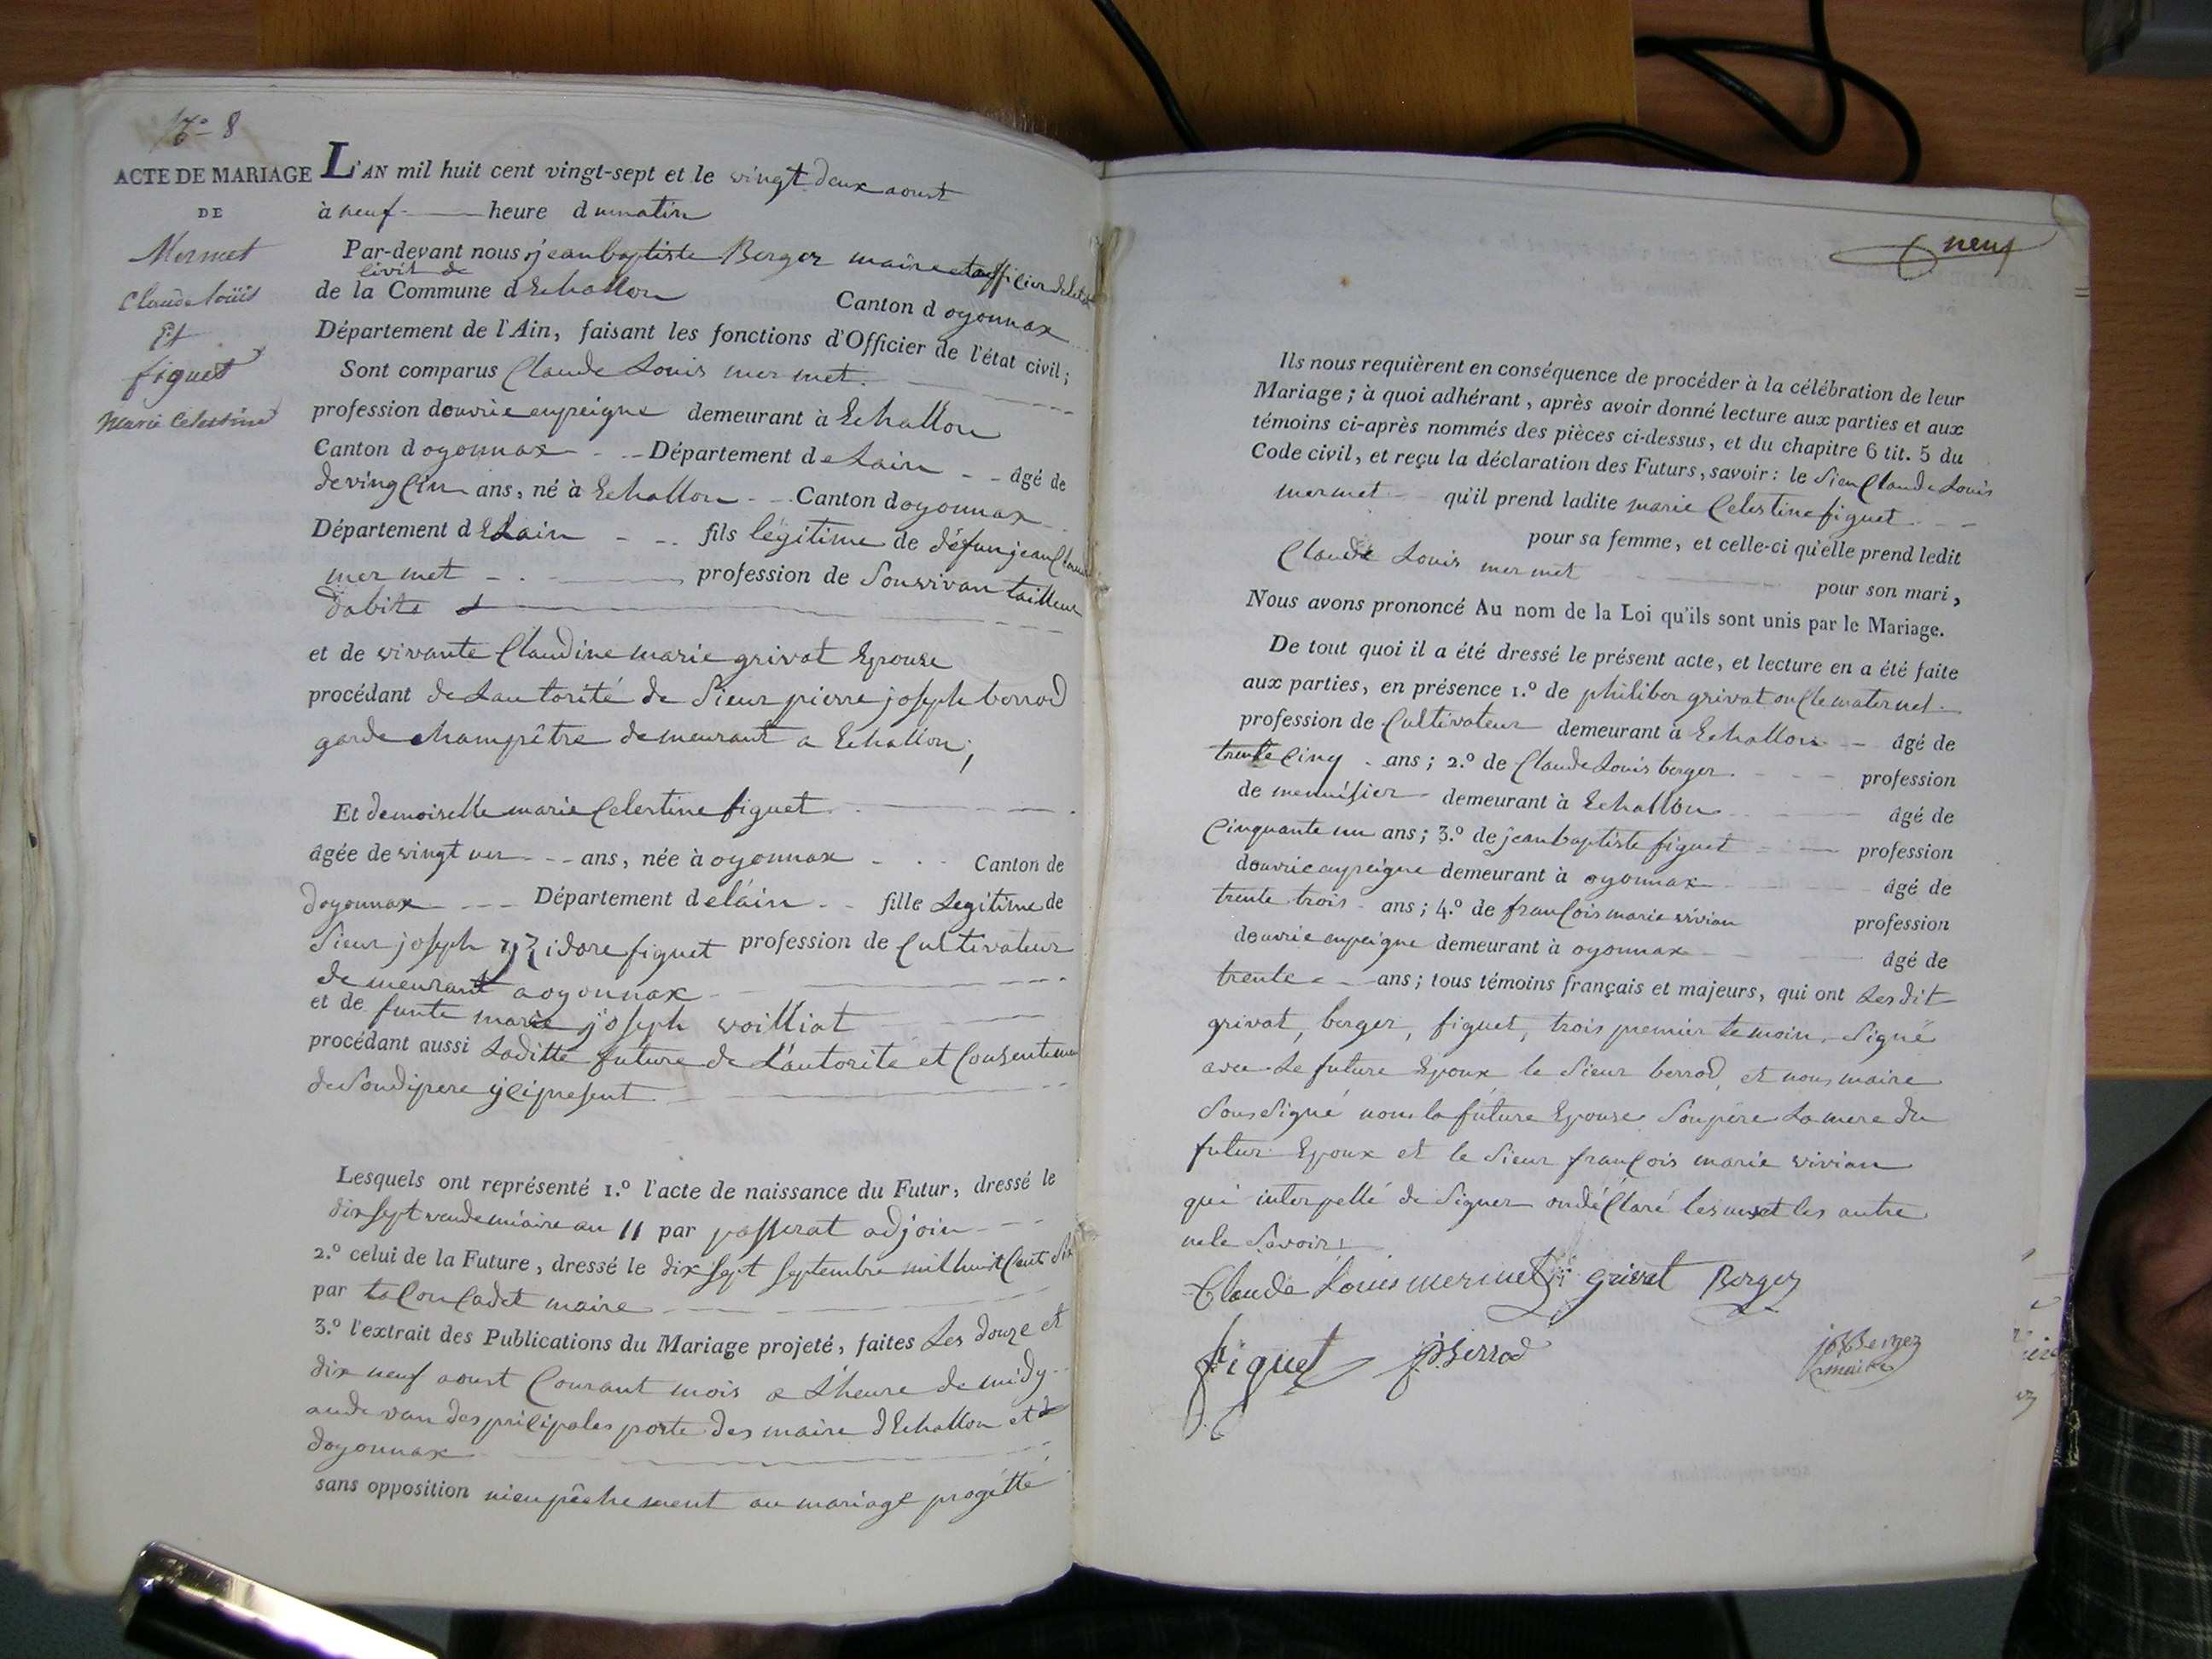 N° 8
ACTE DE MARIAGE
DE
Mermet
Claude Louis
Et
figuet
Marie Celestine
L'AN mil huit cent vingt-sept et le vingt deux aoust
à neuf heure du matin
Par-devant nous jean baptiste Berger maire et officier de letat
civil de
de la Commune d Echallon Canton d oyonnax
Département de l'Ain, faisant les fonctions d'Officier de l'état civil;
Sont comparus Claude Louis mermet
profession douvrie enpeigne demeurant à Echallon
Canton d oyonnax Département de Lain âgé de
de ving cin ans, né à Echallon Canton doyonnax
Département d E Lain fils légitime de défun jean Claude
mermet profession de Sonvivan tailleur
dabits
et de vivante Claudine marie grivat Epouse
procédant de Lautorité de Sieur pierre joseph borrod
garde champêtre demeurant a Echallon;
Et demoiselle marie Celestine figuet
âgée de vingt un ans, née à oyonnax Canton de
doyonnax Département de lain fille Legitime de
Sieur joseph idore figuet profession de Cultivateur
demeurant a oyonnax
et de funte marie joseph voilliat
procédant aussi Laditte future de L'autorité et Consenteme
de Sondipere yci present
Lesquels ont représenté 1.° l'acte de naissance du Futur, dressé le
dix sept vendemiaire an 11 par passerat adjoin
2.° celui de la Future, dressé le dix sept septembre mil huit Cent Six
par tacon Cadet maire
3.° l'extrait des Publications du Mariage projeté, faites Les douze et
dix neuf aoust Courant mois a L'heure de midy
aude van des pricipales porte des maire d Echallon et d
doyonnax
sans opposition nienpêchement au mariage progetté
neuf
Ils nous requièrent en conséquence de procéder à la célébration de leur
Mariage; à quoi adhérant, après avoir donné lecture aux parties et aux
témoins ci-après nommés des pièces ci-dessus, et du chapitre 6 tit. 5 du
Code civil, et reçu la déclaration des Futurs, savoir: le Sieu Claude Louis
mermet qu'il prend ladite marie Celestine figuet
pour sa femme, et celle-ci qu'elle prend ledit
Claude Louis mermet pour son mari,
Nous avons prononcé Au nom de la Loi qu'ils sont unis par le Mariage.
De tout quoi il a été dressé le présent acte, et lecture en a été faite
aux parties, en présence 1.° de philiber grivat oncle maternel
profession de Cultivateur demeurant à Echallon âgé de
trente Cinq ans; 2.° de Claude Louis berger profession
de menuisier demeurant à Echallon âgé de
Cinquante un ans; 3.° de jean baptiste figuet profession
douvrie enpeigne demeurant à oyonnax âgé de
trente trois ans; 4.° de françois marie vivian profession
douvrie enpeigne demeurant à oyonnax âgé de
trente ans; tous témoins français et majeurs, qui ont Lesdit
grivat, berger, figuet, trois premier temoin Signé
avec Le future Epoux le Sieur berrod, et nous maire
Sous Signé non la future Epouse Sonpère La mere du
futur Epoux et le Sieur françois marie vivian
qui interpellé de Signer on déClaré les un et les autre
ne le Savoir
Claude Louis mermet grivat Berger
figuet pj berrod jb Berger
maire